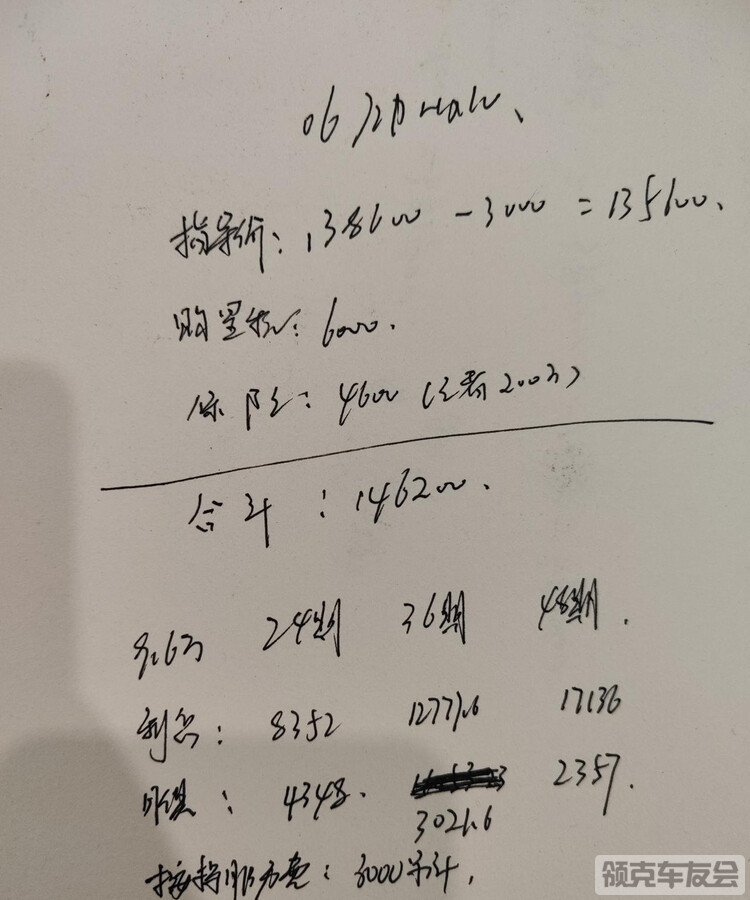 06 Halo
指导价: 138600 - 3000 = 135600.
购置税: 6000.
保险: 4600 (三者200万)
合计: 146200.
9.6万 24期 36期 48期.
利息: 8352 12777.6 17136
月供: 4348. 2357.
3021.6
按揭服务费: 3000
领克车友会